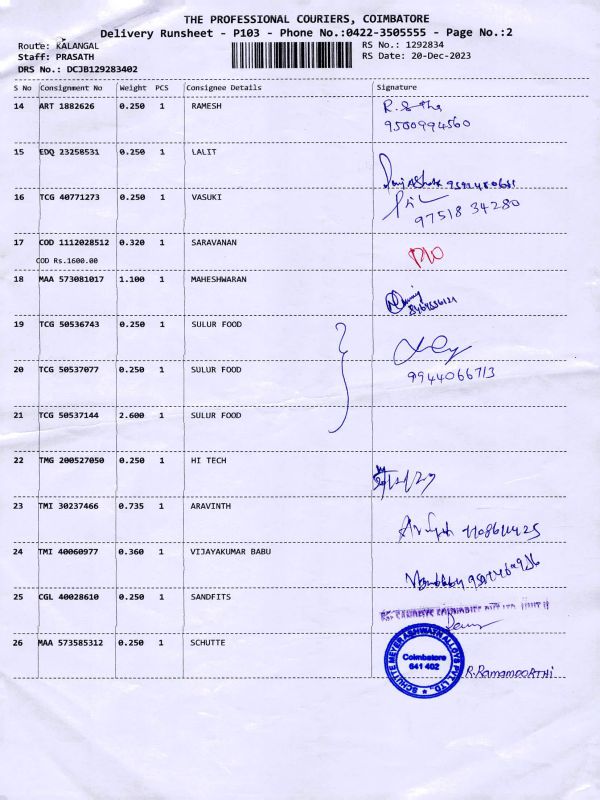 THE PROFESSIONAL COURIERS, COIMBATORE
Delivery Runsheet - P103 - Phone No.:0422-3505555 - Page No.:2
Route: KALANGAL
RS No.: 1292834
Staff: PRASATH
RS Date: 20-Dec-2023
DRS No.: DCJB129283402
S No Consignment No Weight PCS Consignee Details Signature
14 ART 1882626 0.250 1 RAMESH
9500994560
15 EDQ 23258531 0.250 1 LALIT
16 TCG 40771273 0.250 1 VASUKI
97518 34280
17 COD 1112028512 0.320 1 SARAVANAN
COD Rs.1600.00
18 MAA 573081017 1.100 1 MAHESHWARAN
19 TCG 50536743 0.250 1 SULUR FOOD
20 TCG 50537077 0.250 1 SULUR FOOD
9944066713
21 TCG 50537144 2.600 1 SULUR FOOD
22 TMG 200527050 0.250 1 HI TECH
23 TMI 30237466 0.735 1 ARAVINTH
24 TMI 40060977 0.360 1 VIJAYAKUMAR BABU
25 CGL 40028610 0.250 1 SANDFITS
26 MAA 573585312 0.250 1 SCHUTTE
SCHUTTE MEYER ASHWATH ALLOYS PVT LTD.,
Coimbatore
641 402
R.RamamoorTHi